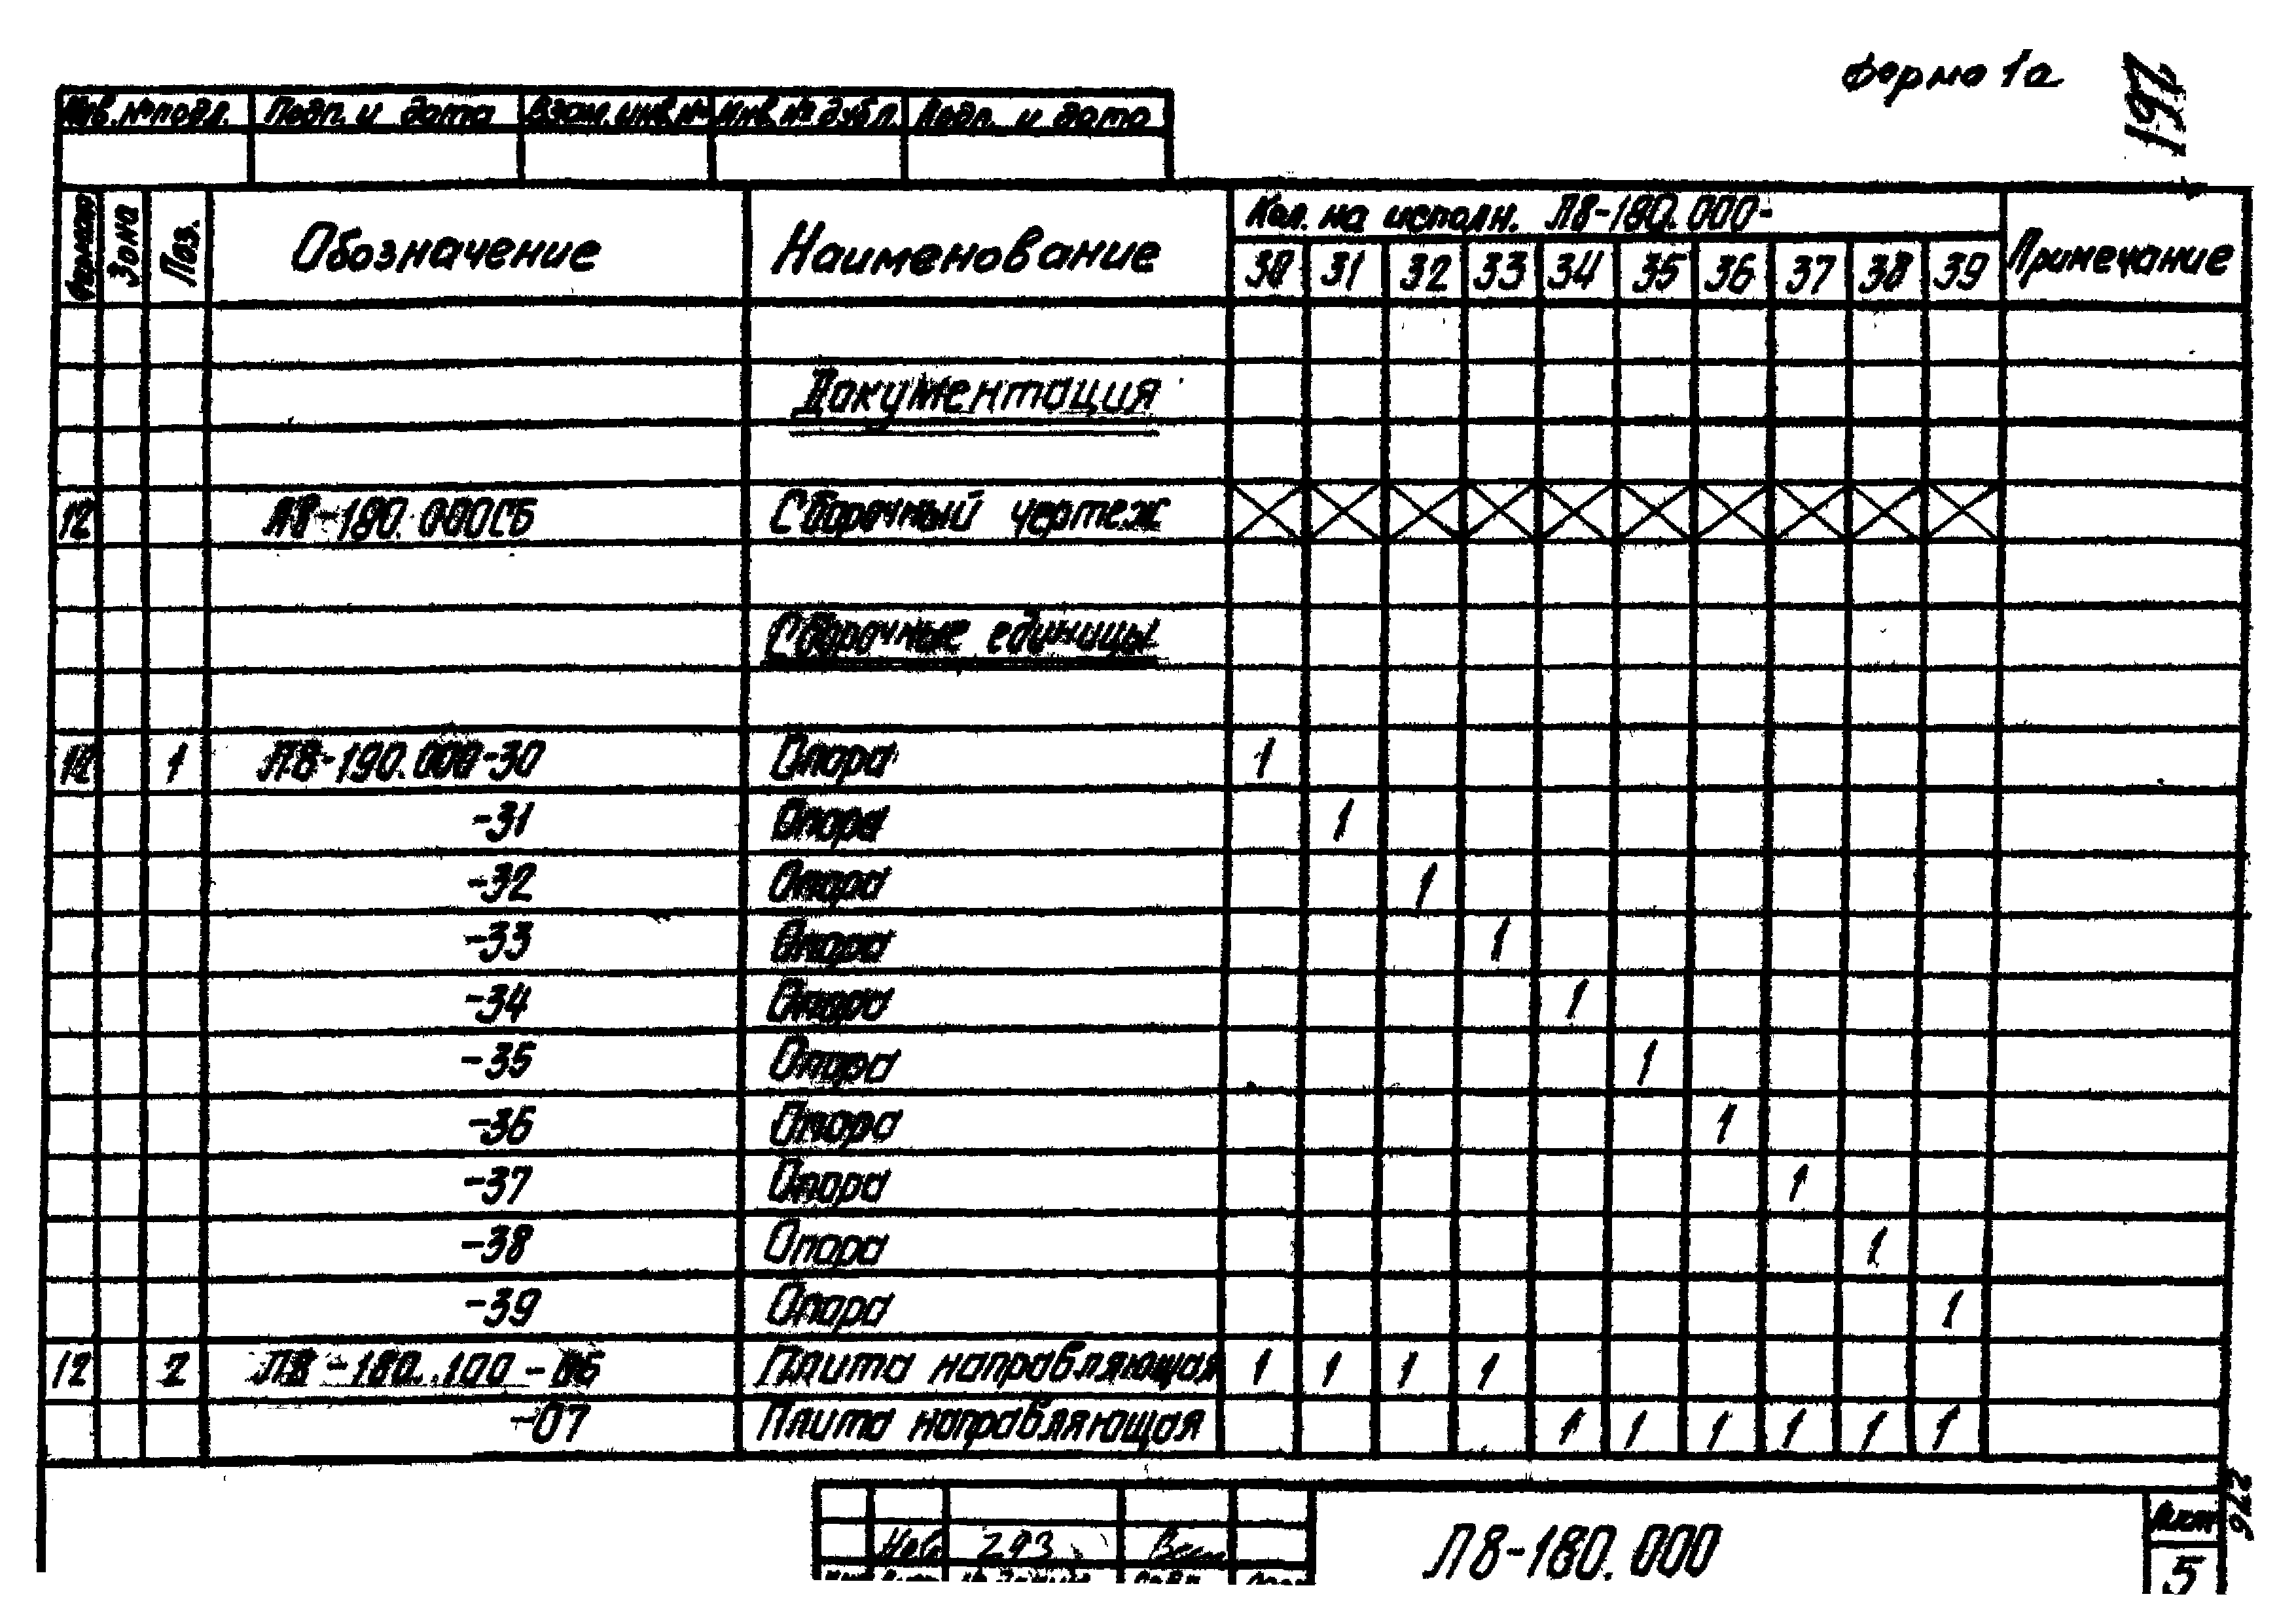 Форма 1а
197
Инв.№подл. Подп. и дата Взам.инв.№ Инв.№дубл. Подп. и дата
Формат Зона Поз. Обозначение Наименование Кол. на исполн. Л8-180.000- Примечание
30 31 32 33 34 35 36 37 38 39
Документация
12 Л8-180.000СБ Сборочный чертеж
Сборочные единицы
12 1 Л8-190.000-30 Опора 1
-31 Опора 1
-32 Опора 1
-33 Опора 1
-34 Опора 1
-35 Опора 1
-36 Опора 1
-37 Опора 1
-38 Опора 1
-39 Опора 1
12 2 Л8-180.100-06 Плита направляющая 1 1 1 1
-07 Плита направляющая 1 1 1 1 1 1
Л8-180.000
Лист
5